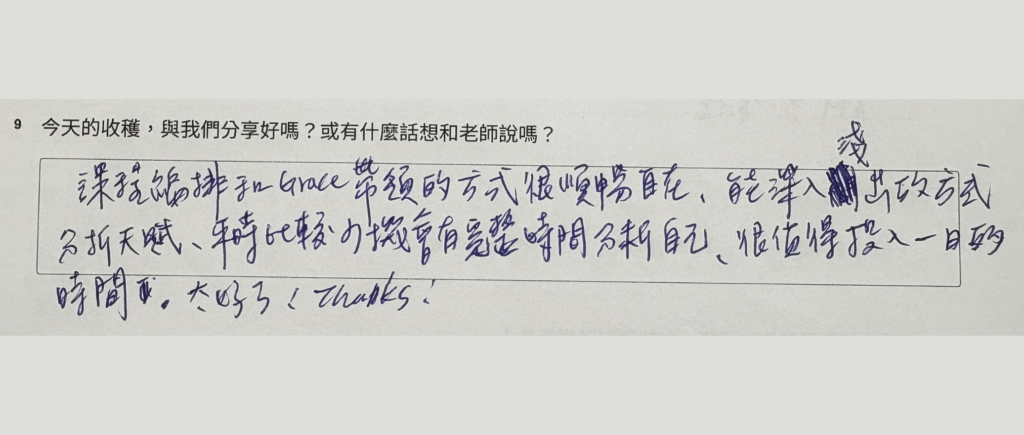 9 今天的收穫，與我們分享好嗎？或有什麼話想和老師說嗎？
淺
課程編排和Grace帶領的方式很順暢自在、能深入出的方式
分析天賦、平時比較少機會有完整時間分析自己、很值得投入一日的
時間。太好了！Thanks！